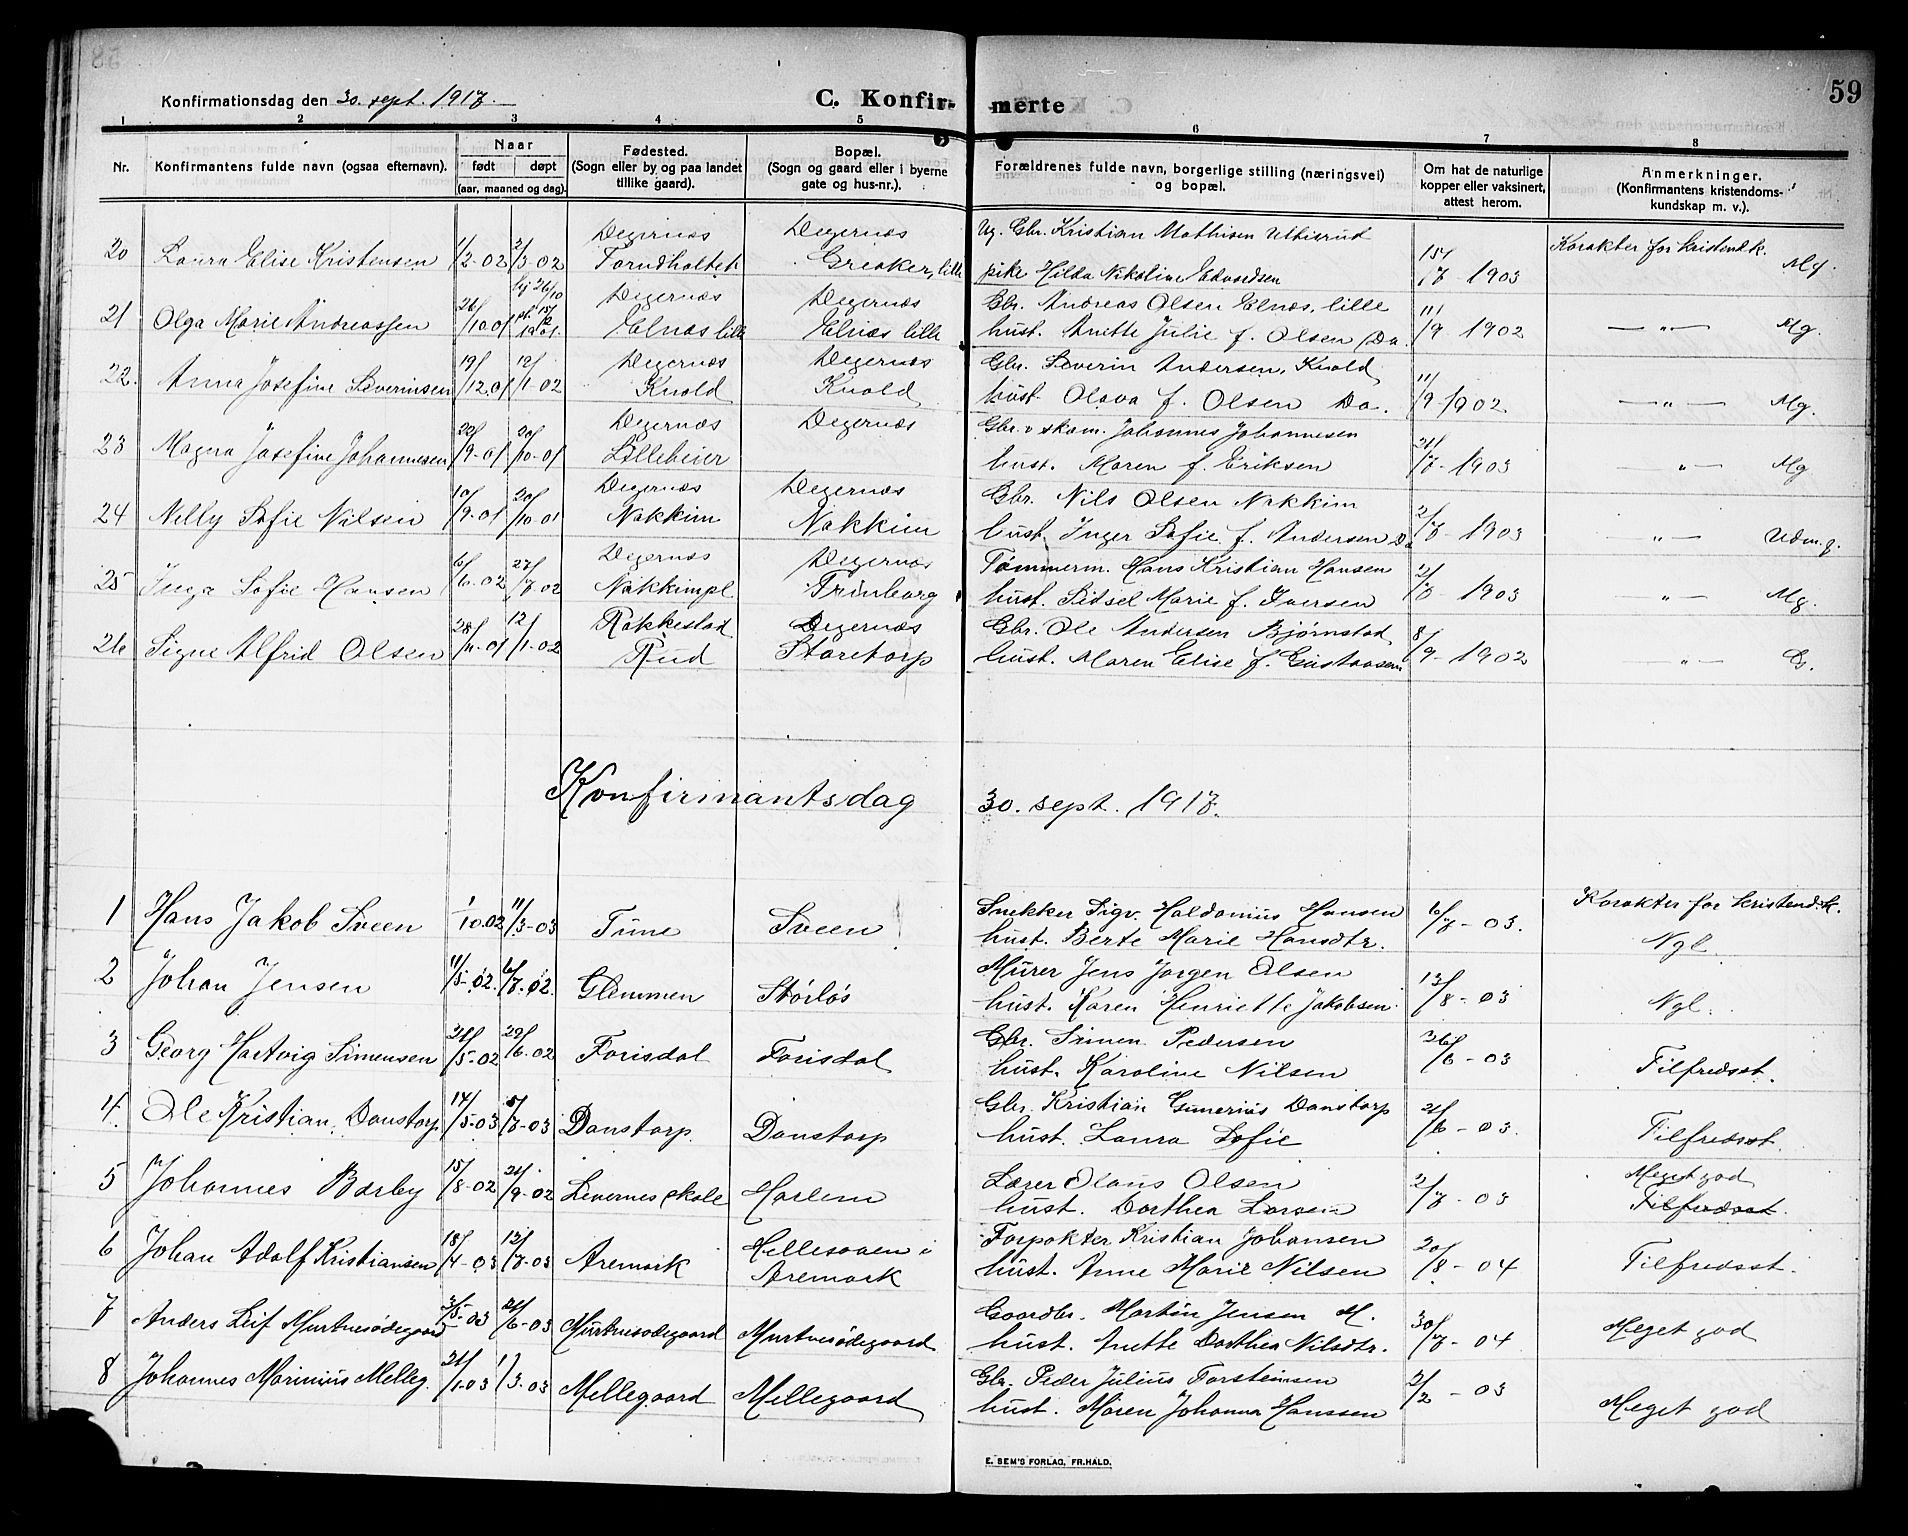 59
Konfirmationsdag den 30. sept. 1917.
C. Konfir-merte
1 2 3 4 5 6 7 8
Nr.
Konfirmantens fulde navn (ogsaa efternavn).
Naar
født døpt
(aar, maaned og dag).
Fødested.
(Sogn eller by og paa landet
tillike gaard).
Bopæl.
(Sogn og gaard eller i byerne
gate og hus-nr.).
Forældrenes fulde navn, borgerlige stilling (næringsvei)
og bopæl.
Om hat de naturlige
kopper eller vaksinert,
attest herom.
Anmerkninger.
(Konfirmantens kristendoms-
kundskap m. v.).
Degernæs Degernæs Ug. Gbr. Kristian Mathisen Ultisrud
20 Laura Elise Kristensen 1/2-02 2/3-02 Torudholtet Greaker, lille pike Hilda Nikoline Edvardsen 15/7-1903 Karakter for kristend.k. Mg.
hj 26/10 Degernæs Degernæs Gbr. Andreas Olsen Elnæs, lille
21 Olga Marie Andreassen 26/10.01 1901. Elnæs lille Elnæs lille hust. Anette Julie f. Olsen Do. 11/9 1902 — " — Mg.
Degernæs Degernæs Gbr. Severin Andersen, Knold
22. Anna Josefine Severinsen 19/12.01 12/1-02 Knold Knold hust. Olava f. Olsen Do. 11/9-1902 — " — Mg.
Degernæs Degernæs Gbr. v skom. Johannes Johannesen
23 Magna Josefine Johannesen 22/9-01 20/10-01 Lillebeier hust. Maren f. Eriksen 21/7-1903 " — Mg
Degernæs Degernæs Gbr. Nils Olsen Nakkim
24 Nelly Sofie Nilsen 10/9-01 20/10-01 Nakkim Nakkim hust. Inger Sofie f. Andersen Do 2/7-1903 " — Udm.g.
Degernæs Degernæs Tømmerm. Hans Kristian Hansen
25 Inga Sofie Hansen 6/6.02 27/7.02 Nakkimpl Trinborg hust. Sidsel Marie f. Iversen 2/7-1903 " — Mg.
Rakkestad Degernæs Gbr. Ole Andersen Bjørnstad
26 Signe Alfrid Olsen 28/11-01 12/1-02 Rud Storetorp hust. Maren Elise f. Gustavsen 8/9-1902 " — G.
Konfirmantsdag 30. sept. 1917.
1 Hans Jakob Sveen 1/10.02 11/3-03 Tune Sveen Snekker Sigv. Haldanius Hansen 6/7-03. Karakter for kristend.k.
hust. Berte Marie Hansdtr. Ngl.
2 Johan Jensen 11/5-02. 6/7-02. Glemmen Størløs Murer Jens Jørgen Olsen 13/8-03
hust. Karen Henriette Jakobsen. Ngl.
3 Georg Hartvig Simensen 21/5-02 29/6.02 Forisdal Forisdal Gbr. Simen Pedersen 26/6-03
hust. Karoline Nilsen Tilfredsst.
4. Ole Kristian Danstorp 14/5-03 5/7-03 Danstorp Danstorp Gbr. Kristian Gunerius Danstorp 21/6-03.
hust. Laura Sofie Tilfredsst.
5 Johannes Barby 15/8-02 21/9-02 Levernes skole Harlem Lærer Olaus Olsen 2/7-03 Meget god
hust. Dorthea Larsen Tilfredsst.
6 Johan Adolf Kristiansen 18/4-03 12/7-03 Aremark Hellesaaen i Forpakter Kristian Johansen 20/8-04
Aremark hust. Anne Marie Nilsen Tilfredsst.
7 Anders Leif Murtnesødegaard 3/5-03 21/6-03 Murtnesødegaard Murtnesødegaard Gaardbr. Martin Jensen M. 30/7-04
hust. Anette Dorthea Nilsdtr. Meget god
8 Johannes Marinius Melleg. 21/1-03 1/3-03 Mellegaard Mellegaard Gbr. Peder Julius Torsteinsen 2/2-03
hust. Maren Johanna Hanssen Meget god
E. SEM'S FORLAG, FR.HALD.